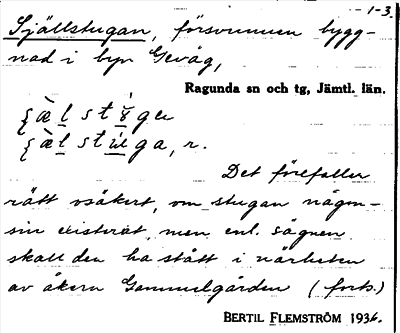 - 1-3.
Själlstugan, försvunnen bygg-
nad i byn Gevåg,
Ragunda sn och tg, Jämtl. län.
Det förefaller
rätt osäkert, om stugan någon-
sin existerat, men enl. sägnen
skall den ha stått i närheten
av åkern Gammelgården (forts.)
BERTIL FLEMSTRÖM 1936.